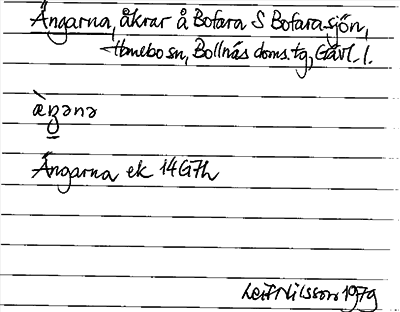 Ängarna, åkrar å Bofara S Bofarasjön,
Hanebo sn, Bollnäs doms.tg, Gävl. l.
æŋənə
Ängarna ek 14G7h
Leif Nilsson 1979